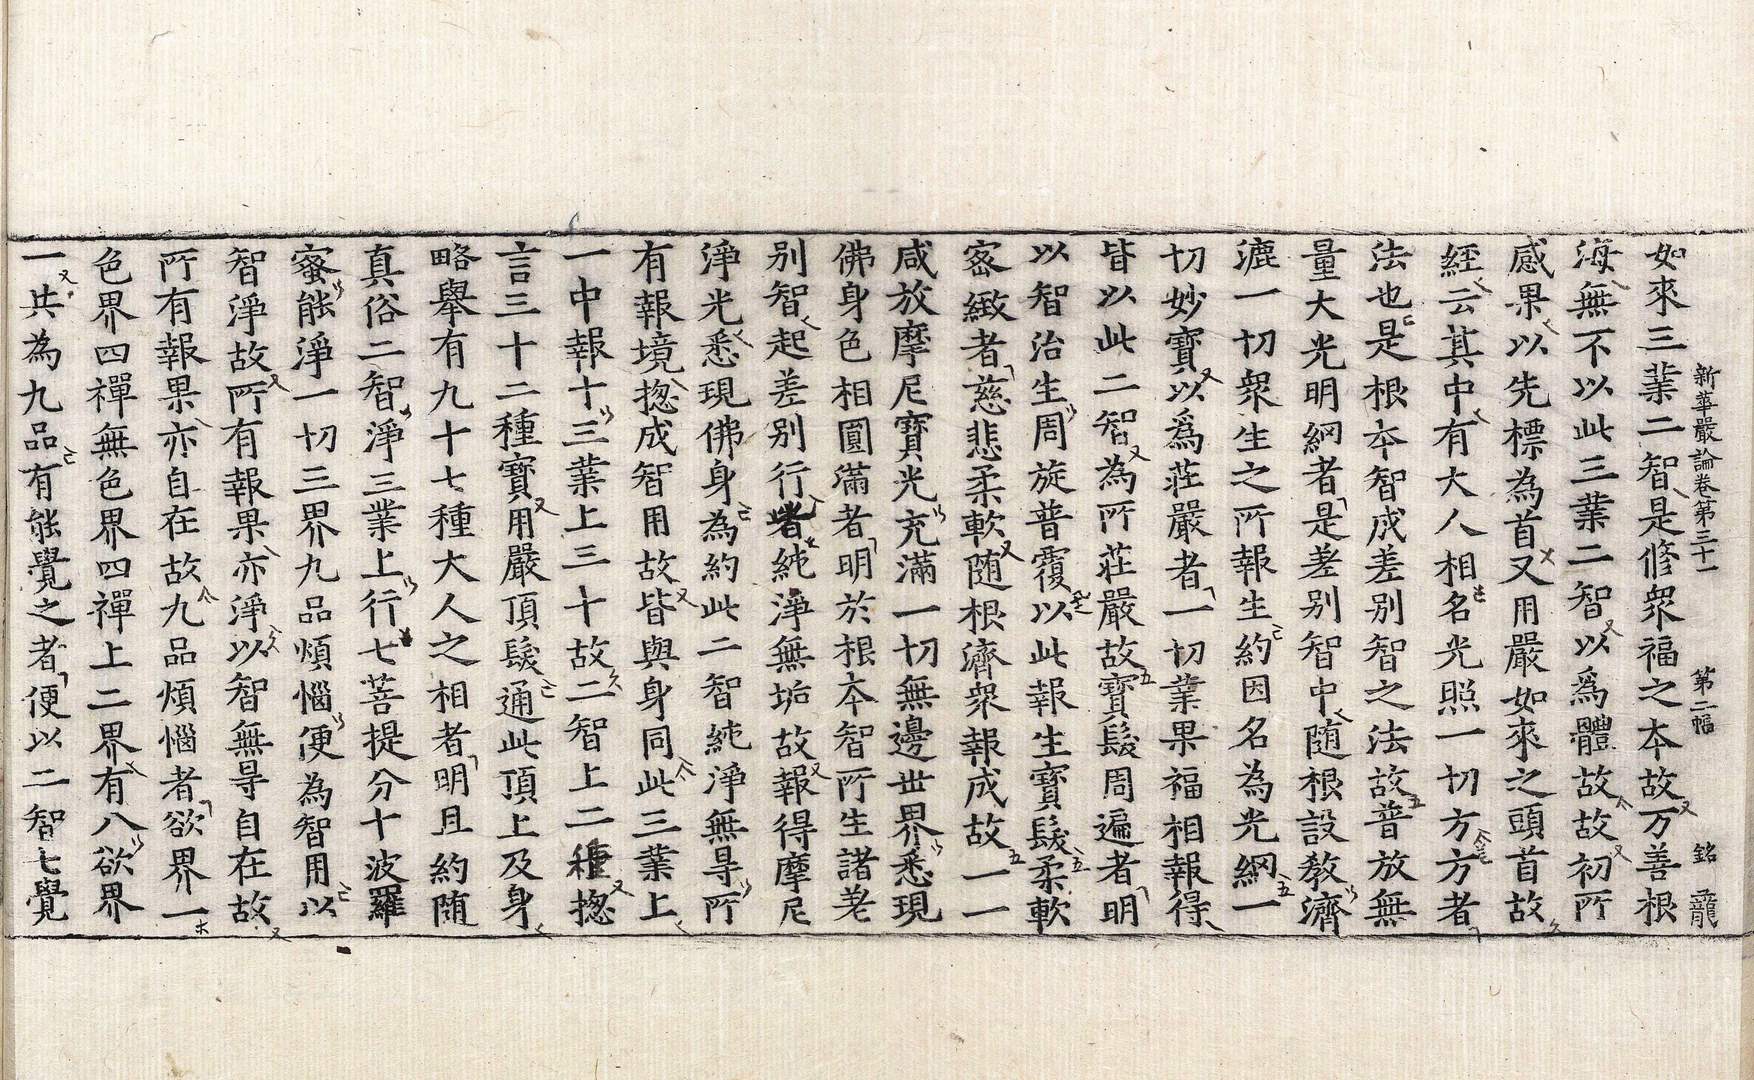 新華嚴論卷第三十一　第二幅　銘　龍
如來三業二智是修衆福之本故万善根
海無不以此三業二智以爲體故故初所
感果以先標為首又用嚴如來之頭首故
經云其中有大人相名光照一切方方者
法也是根本智成差別智之法故普放無
量大光明網者是差別智中随根設教濟
漉一切衆生之所報生約因名為光網一
切妙寶以爲莊嚴者一切業果福相報得
皆以此二智為所莊嚴故寶髮周遍者明
以智治生周旋普覆以此報生寶髮柔軟
宻緻者慈悲柔軟随根濟衆報成故一一
咸放摩尼寶光充滿一切無邊世界悉現
佛身色相圓滿者明於根本智所生諸差
別智起差別行者純淨無垢故報得摩尼
淨光悉現佛身為約此二智純淨無㝵所
有報境揔成智用故皆與身同此三業上
一中報十三業上三十故二智上二種揔
言三十二種寶用嚴頂髮通此頂上及身
略舉有九十七種大人之相者明且約随
真俗二智淨三業上行七菩提分十波羅
蜜能淨一切三界九品煩惱便為智用以
智淨故所有報果亦淨以智無㝵自在故
所有報果亦自在故九品煩惱者欲界一
色界四禪無色界四禪上二界有八欲界
一共為九品有能覺之者便以二智七覺